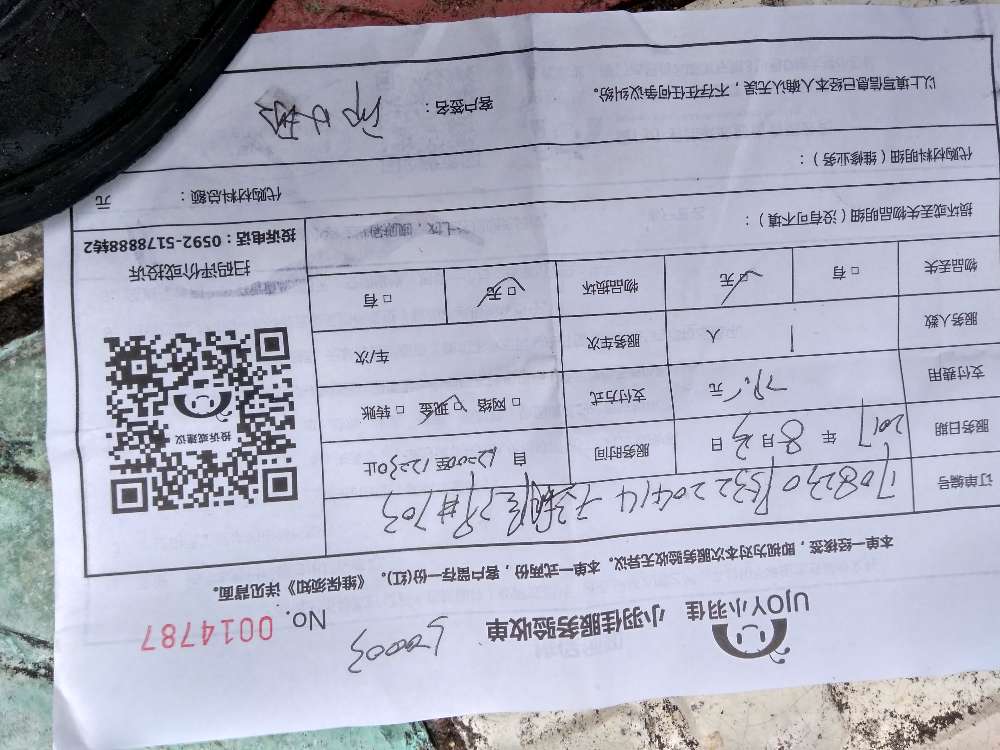 UJOY小羽佳 小羽佳服务验收单
No. 0014787
本单一经接签，即视为对本次服务验收无异议。本单一式两份，客户留存一份(红)。《维保须知》详见背面。
订单编号
服务日期 2017 年 8 月 日 服务时间 自 12:00至12:30止
支付费用 元 支付方式 □ 网络 □ 现金 □ 转账
服务人数 1 人 服务车次 车/次
物品丢失 □ 有 □ 无 物品损坏 □ 无 □ 有
投诉或建议
扫码评价或投诉
投诉电话：0592-5178888转2
损坏或丢失物品明细（没有可不填）：
代购材料明细（维修业务）：
代购材料总额： 元
以上填写信息已经本人确认无误，不存在任何争议纠纷。
客户签名：